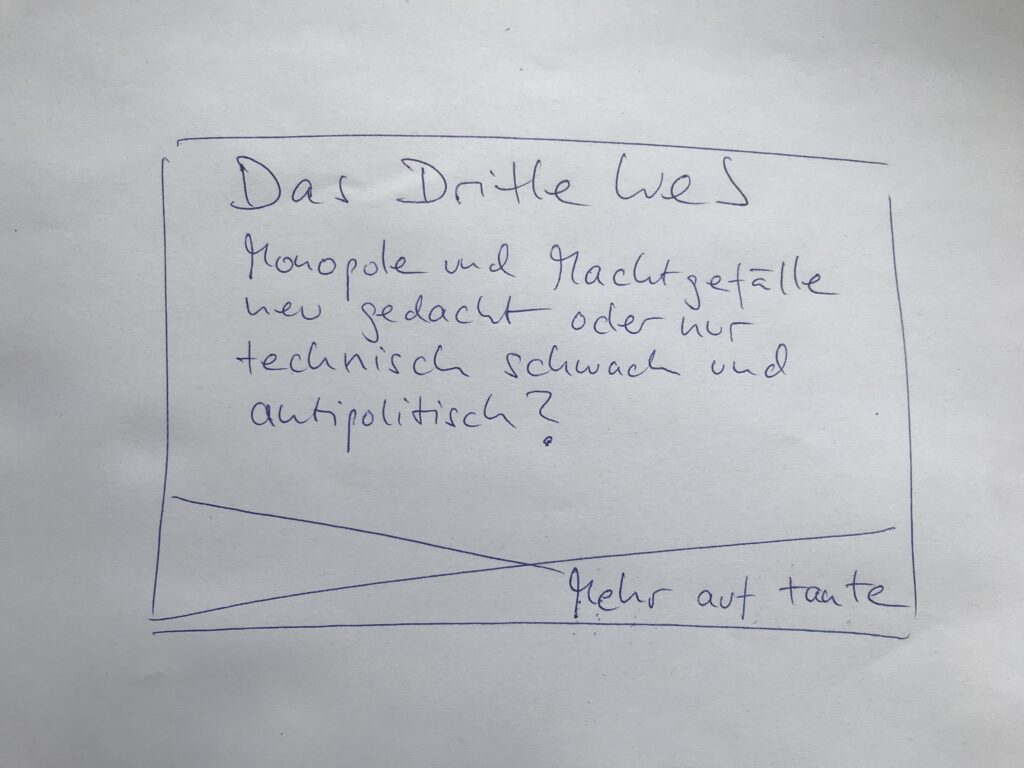 Das Dritte Web
Monopole und Machtgefälle
neu gedacht oder nur
technisch schwach und
antipolitisch?
Mehr auf tante